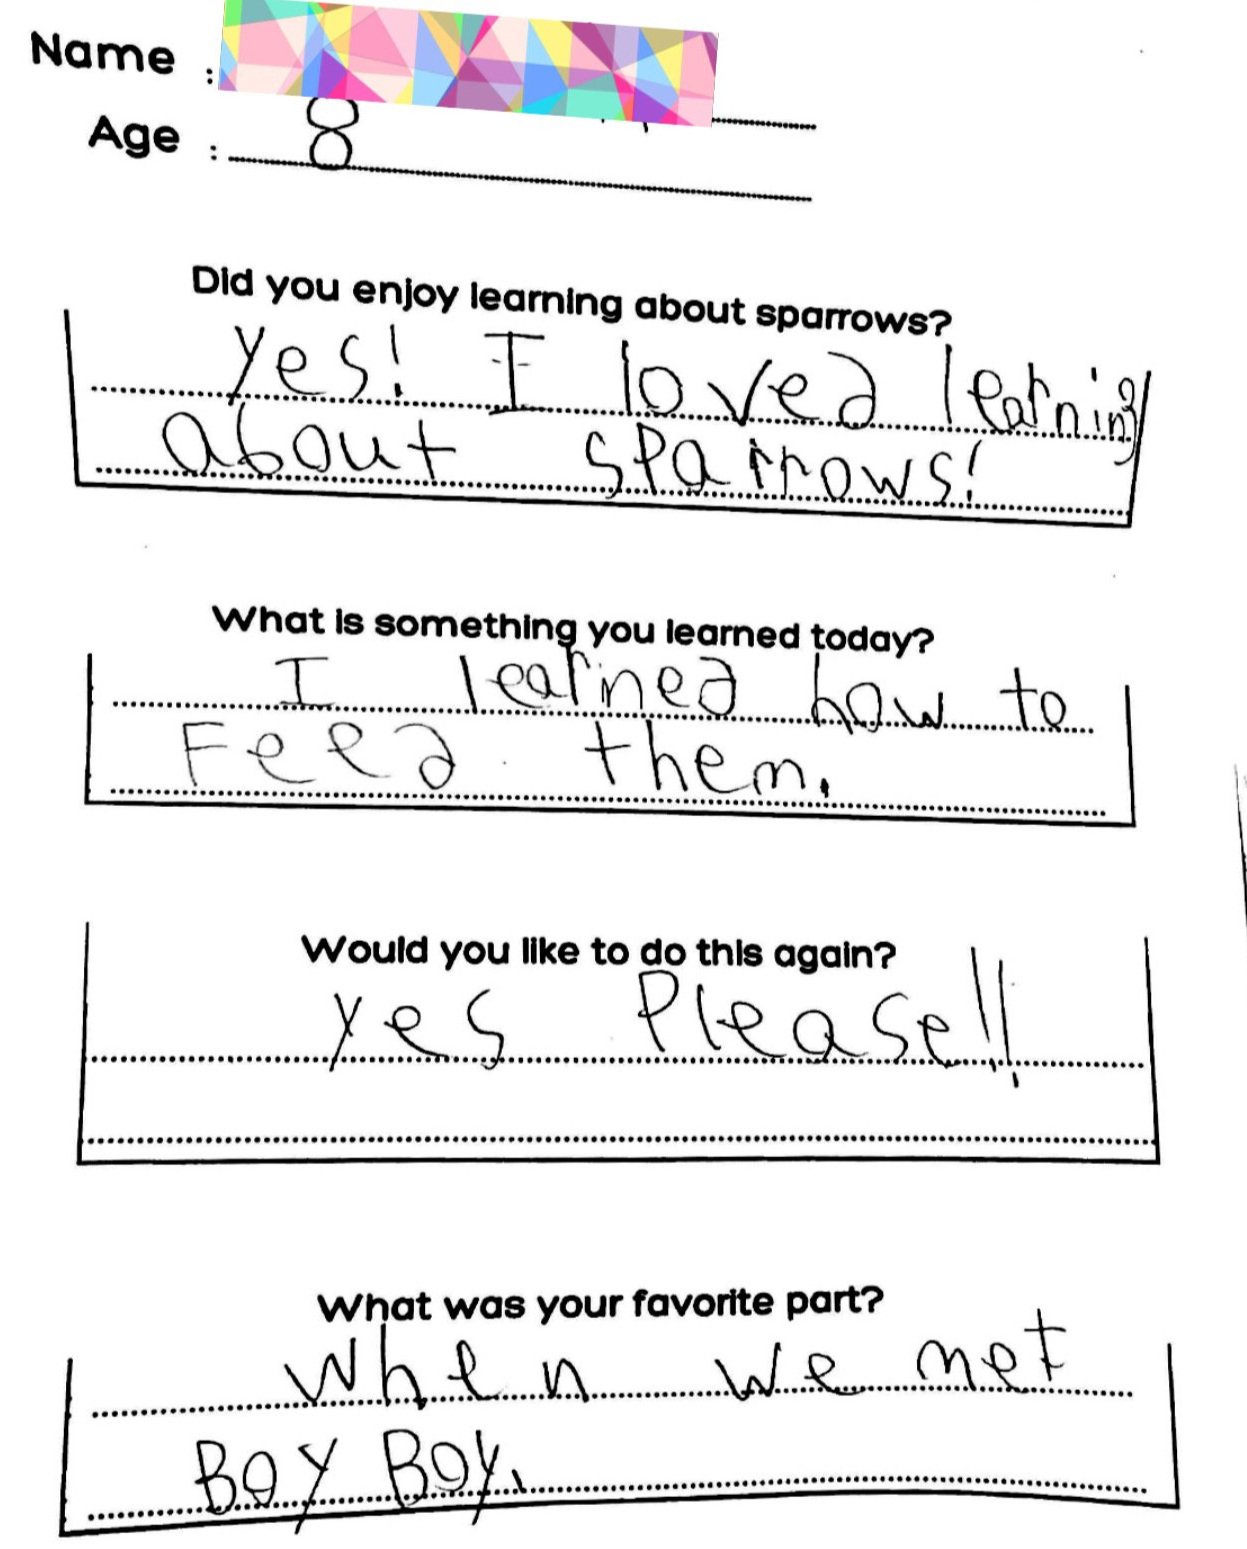 Name :
Age : 8
Did you enjoy learning about sparrows?
Yes! I loved learning
about sparrows!
What is something you learned today?
I learned how to
Feed them.
Would you like to do this again?
Yes Please!!
What was your favorite part?
When we met
Boy Boy.